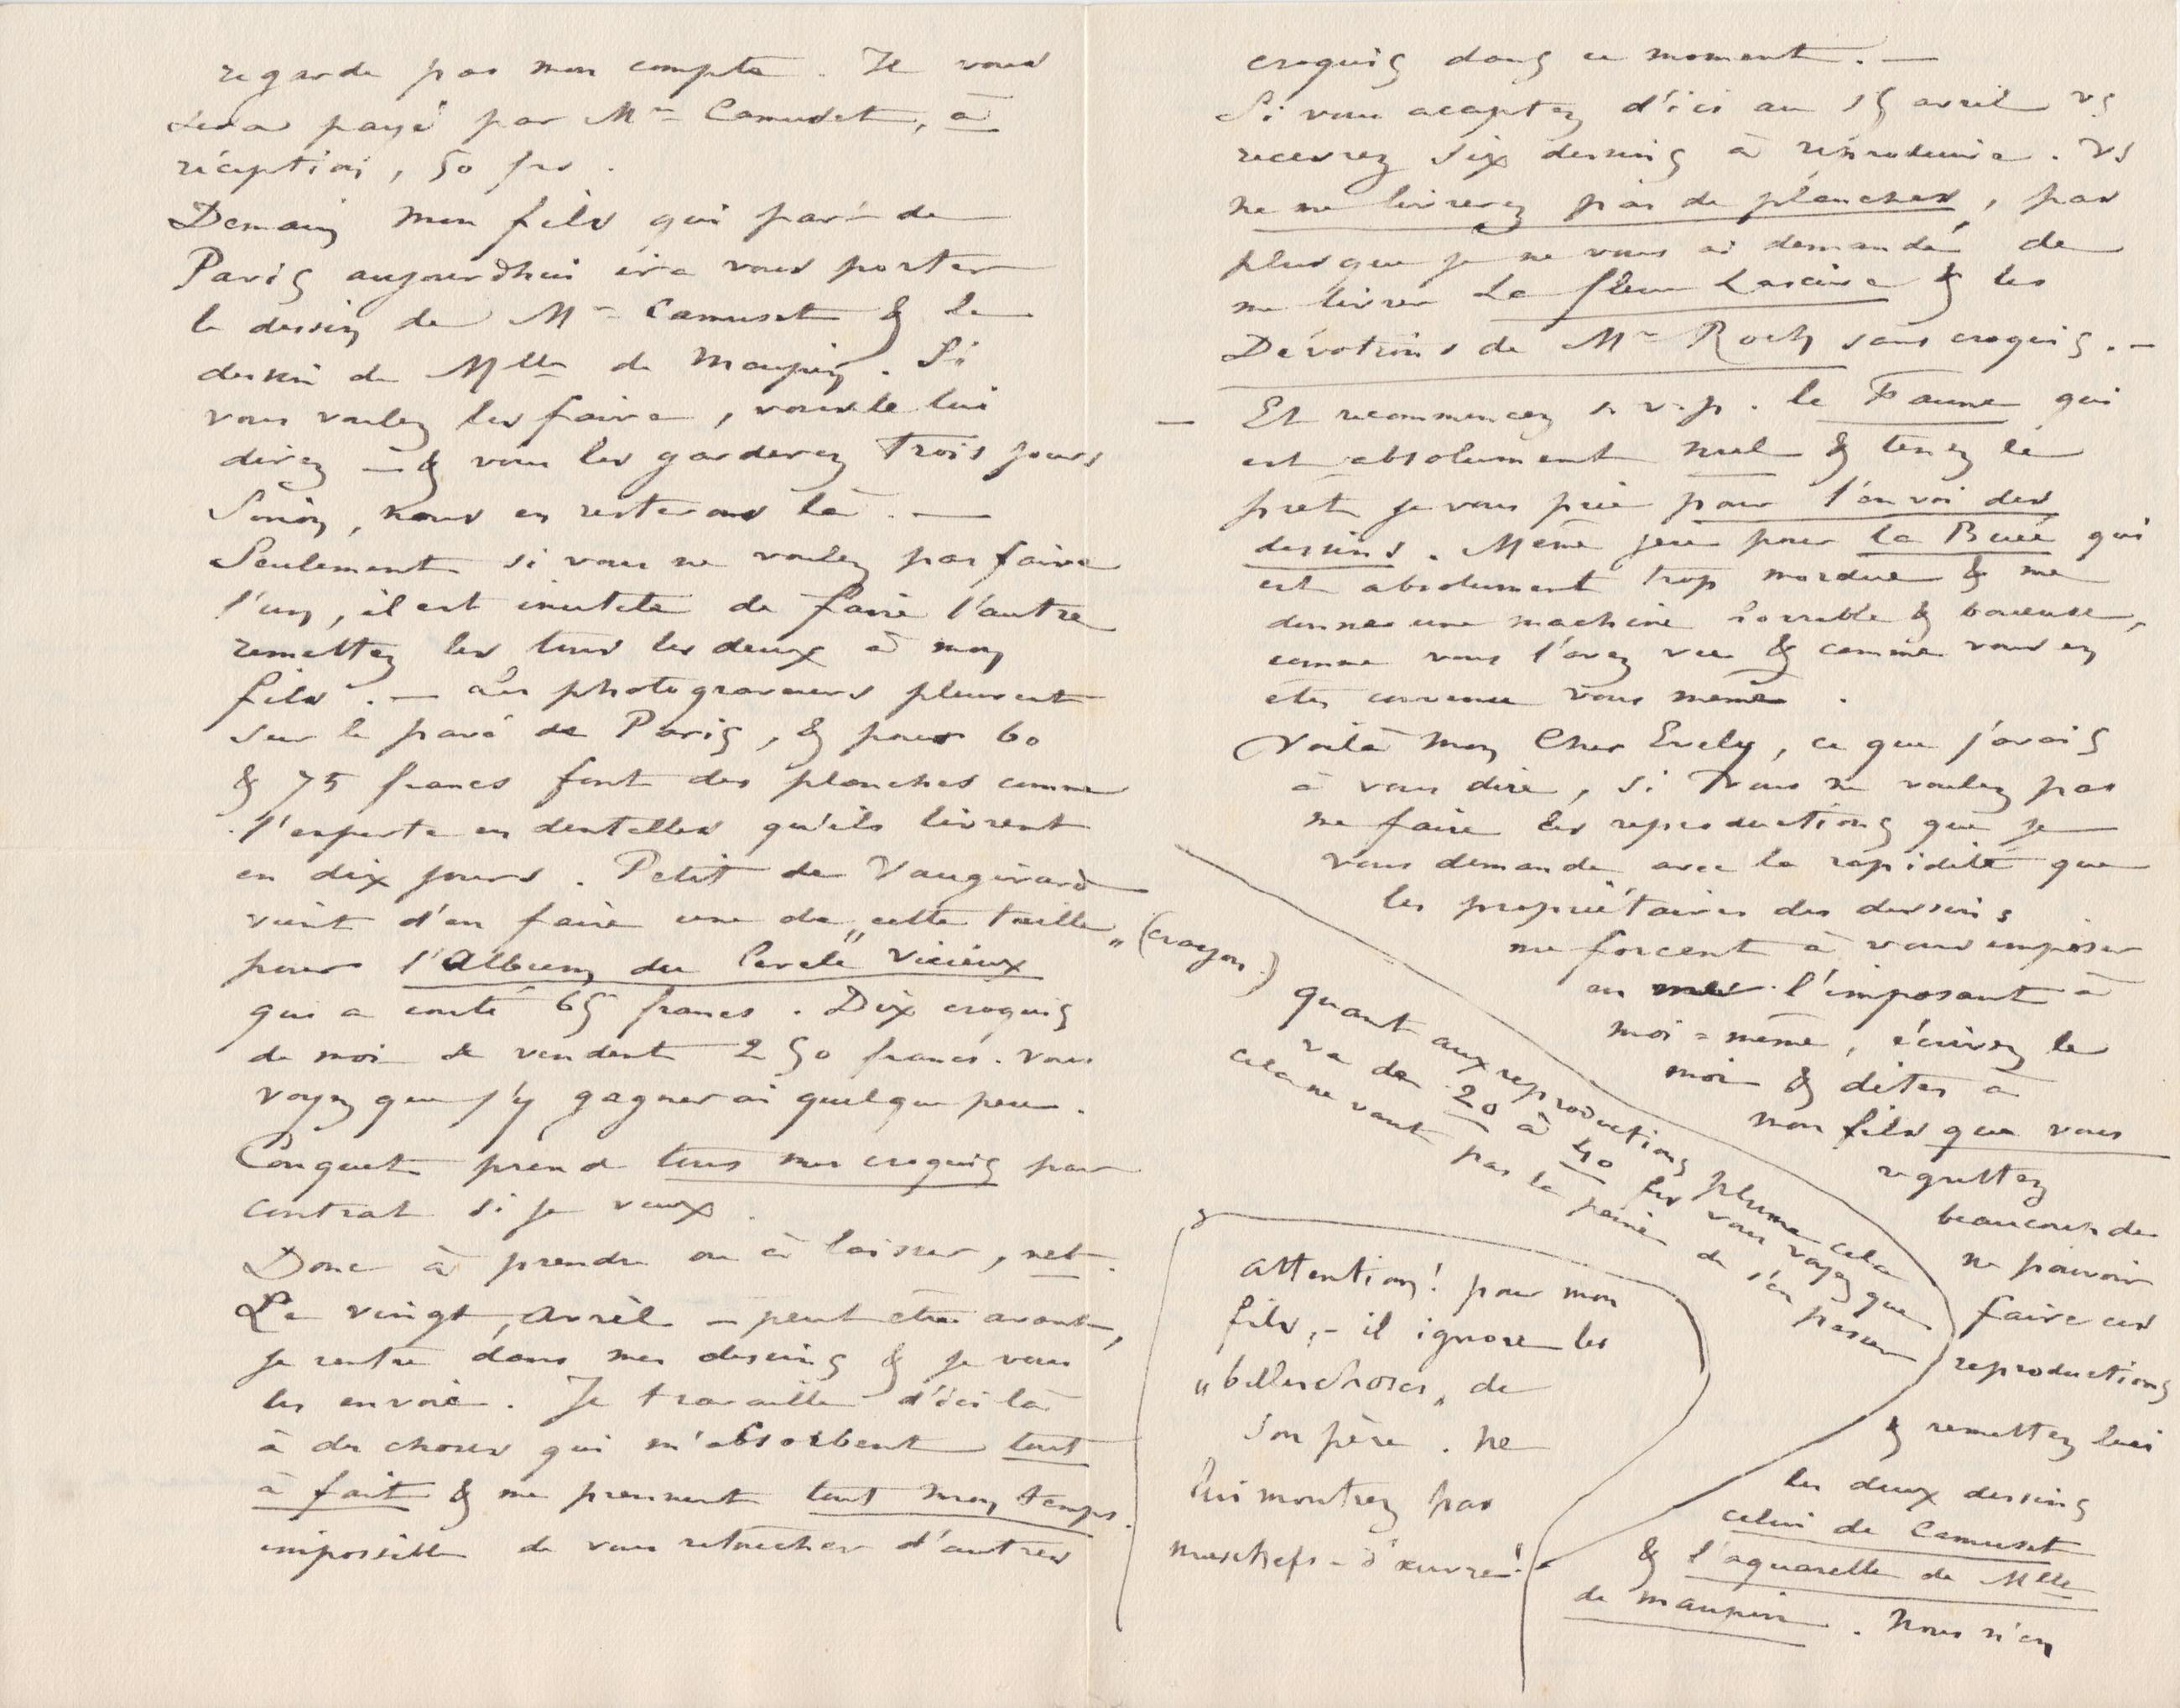 regarde pas mon compte. Il vous
sera payé par Mr Camuset, à
réception, 50 frs.
Demain mon fils qui part de
Paris aujourdhui ira vous porter
le dessin de Mr Camuset & le
dessin de Mlle de Maupin. Si
vous voulez les faire, vous le lui
direz — & vous les garderez trois jours
Sinon, nous en resterons là. —
Seulement si vous ne voulez pas faire
l'un, il est inutile de faire l'autre
remettez les tous les deux à mon
fils. — Les photograveurs pleuvent
sur le pavé de Paris, & pour 60
& 75 francs font des planches comme
l'experte en dentelles qu'ils livrent
en dix jours. Petit de Vaugirard
vient d'en faire une de „cette taille„ (crayon)
pour l'Album du Cercle Vicieux
qui a couté 65 francs. Dix croquis
de moi se vendent 250 francs. Vous
voyez que j'y gagnerai quelque peu.
Conquet prend tous mes croquis par
contrat si je veux.
Donc à prendre ou à laisser, net.
Le vingt, Avril — peut etre avant,
je rentre dans mes dessins & je vous
les envoie. Je travaille d'ici là
à des choses qui m'absorbent tout
à fait & me prennent tout mon temps.
impossible de vous retoucher d'autres
croquis dans ce moment. —
Si vous acceptez d'ici au 15 avril vs
recevrez six dessins à reproduire. Vs
ne me livrerez pas de planches, pas
plus que je ne vous ai demandé de
me livrer La fleur Lascive & les
Dévotions de Mr Roch sans croquis. —
— Et recommencez s. v. p. le Faune qui
est absolument nul & tenez le
prêt je vous prie pour l'envoi des
dessins. Même jeu pour la Buée qui
est absolument trop mordue & me
donne une machine horrible & baveuse,
comme vous l'avez vu & comme vous en
etes convenu vous même.
Voilà mon Cher Evely, ce que j'avais
à vous dire, si vous ne voulez pas
me faire les reproductions que je
vous demande avec la rapidité que
les propriétaires des dessins
me forcent à vous imposer
en me l'imposant à
moi=même, écrivez le
moi & dites à
mon fils que vous
regrettez
beaucoup de
ne pouvoir
faire ces
reproductions
& remettez lui
les deux dessins
celui de Camuset
& l'aquarelle de Mlle
de Maupin. Nous n'en
quant aux reproductions plume cela
va de 20 à 40 frs vous voyez que
cela ne vaut pas la peine de s'en passer
Attention! pour mon
fils, — il ignore les
„belles choses„ de
son père. Ne
lui montrez pas
mes chefs-d'œuvre!